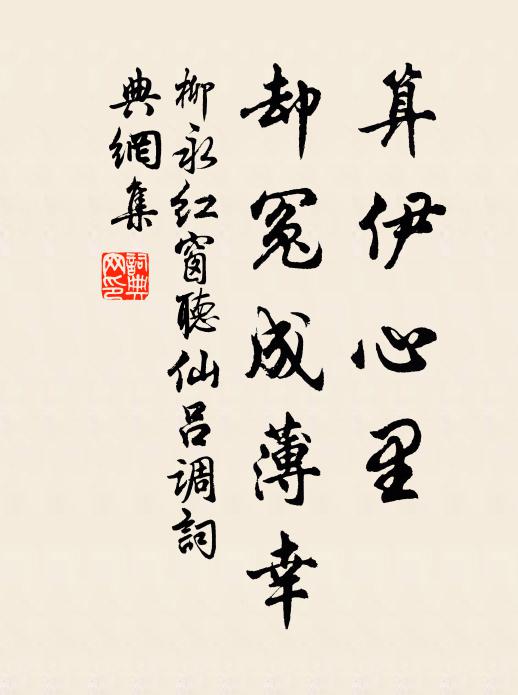 算伊心里
却冤成薄幸
柳永红窗聽仙吕调詞
典網集
詞典
网印